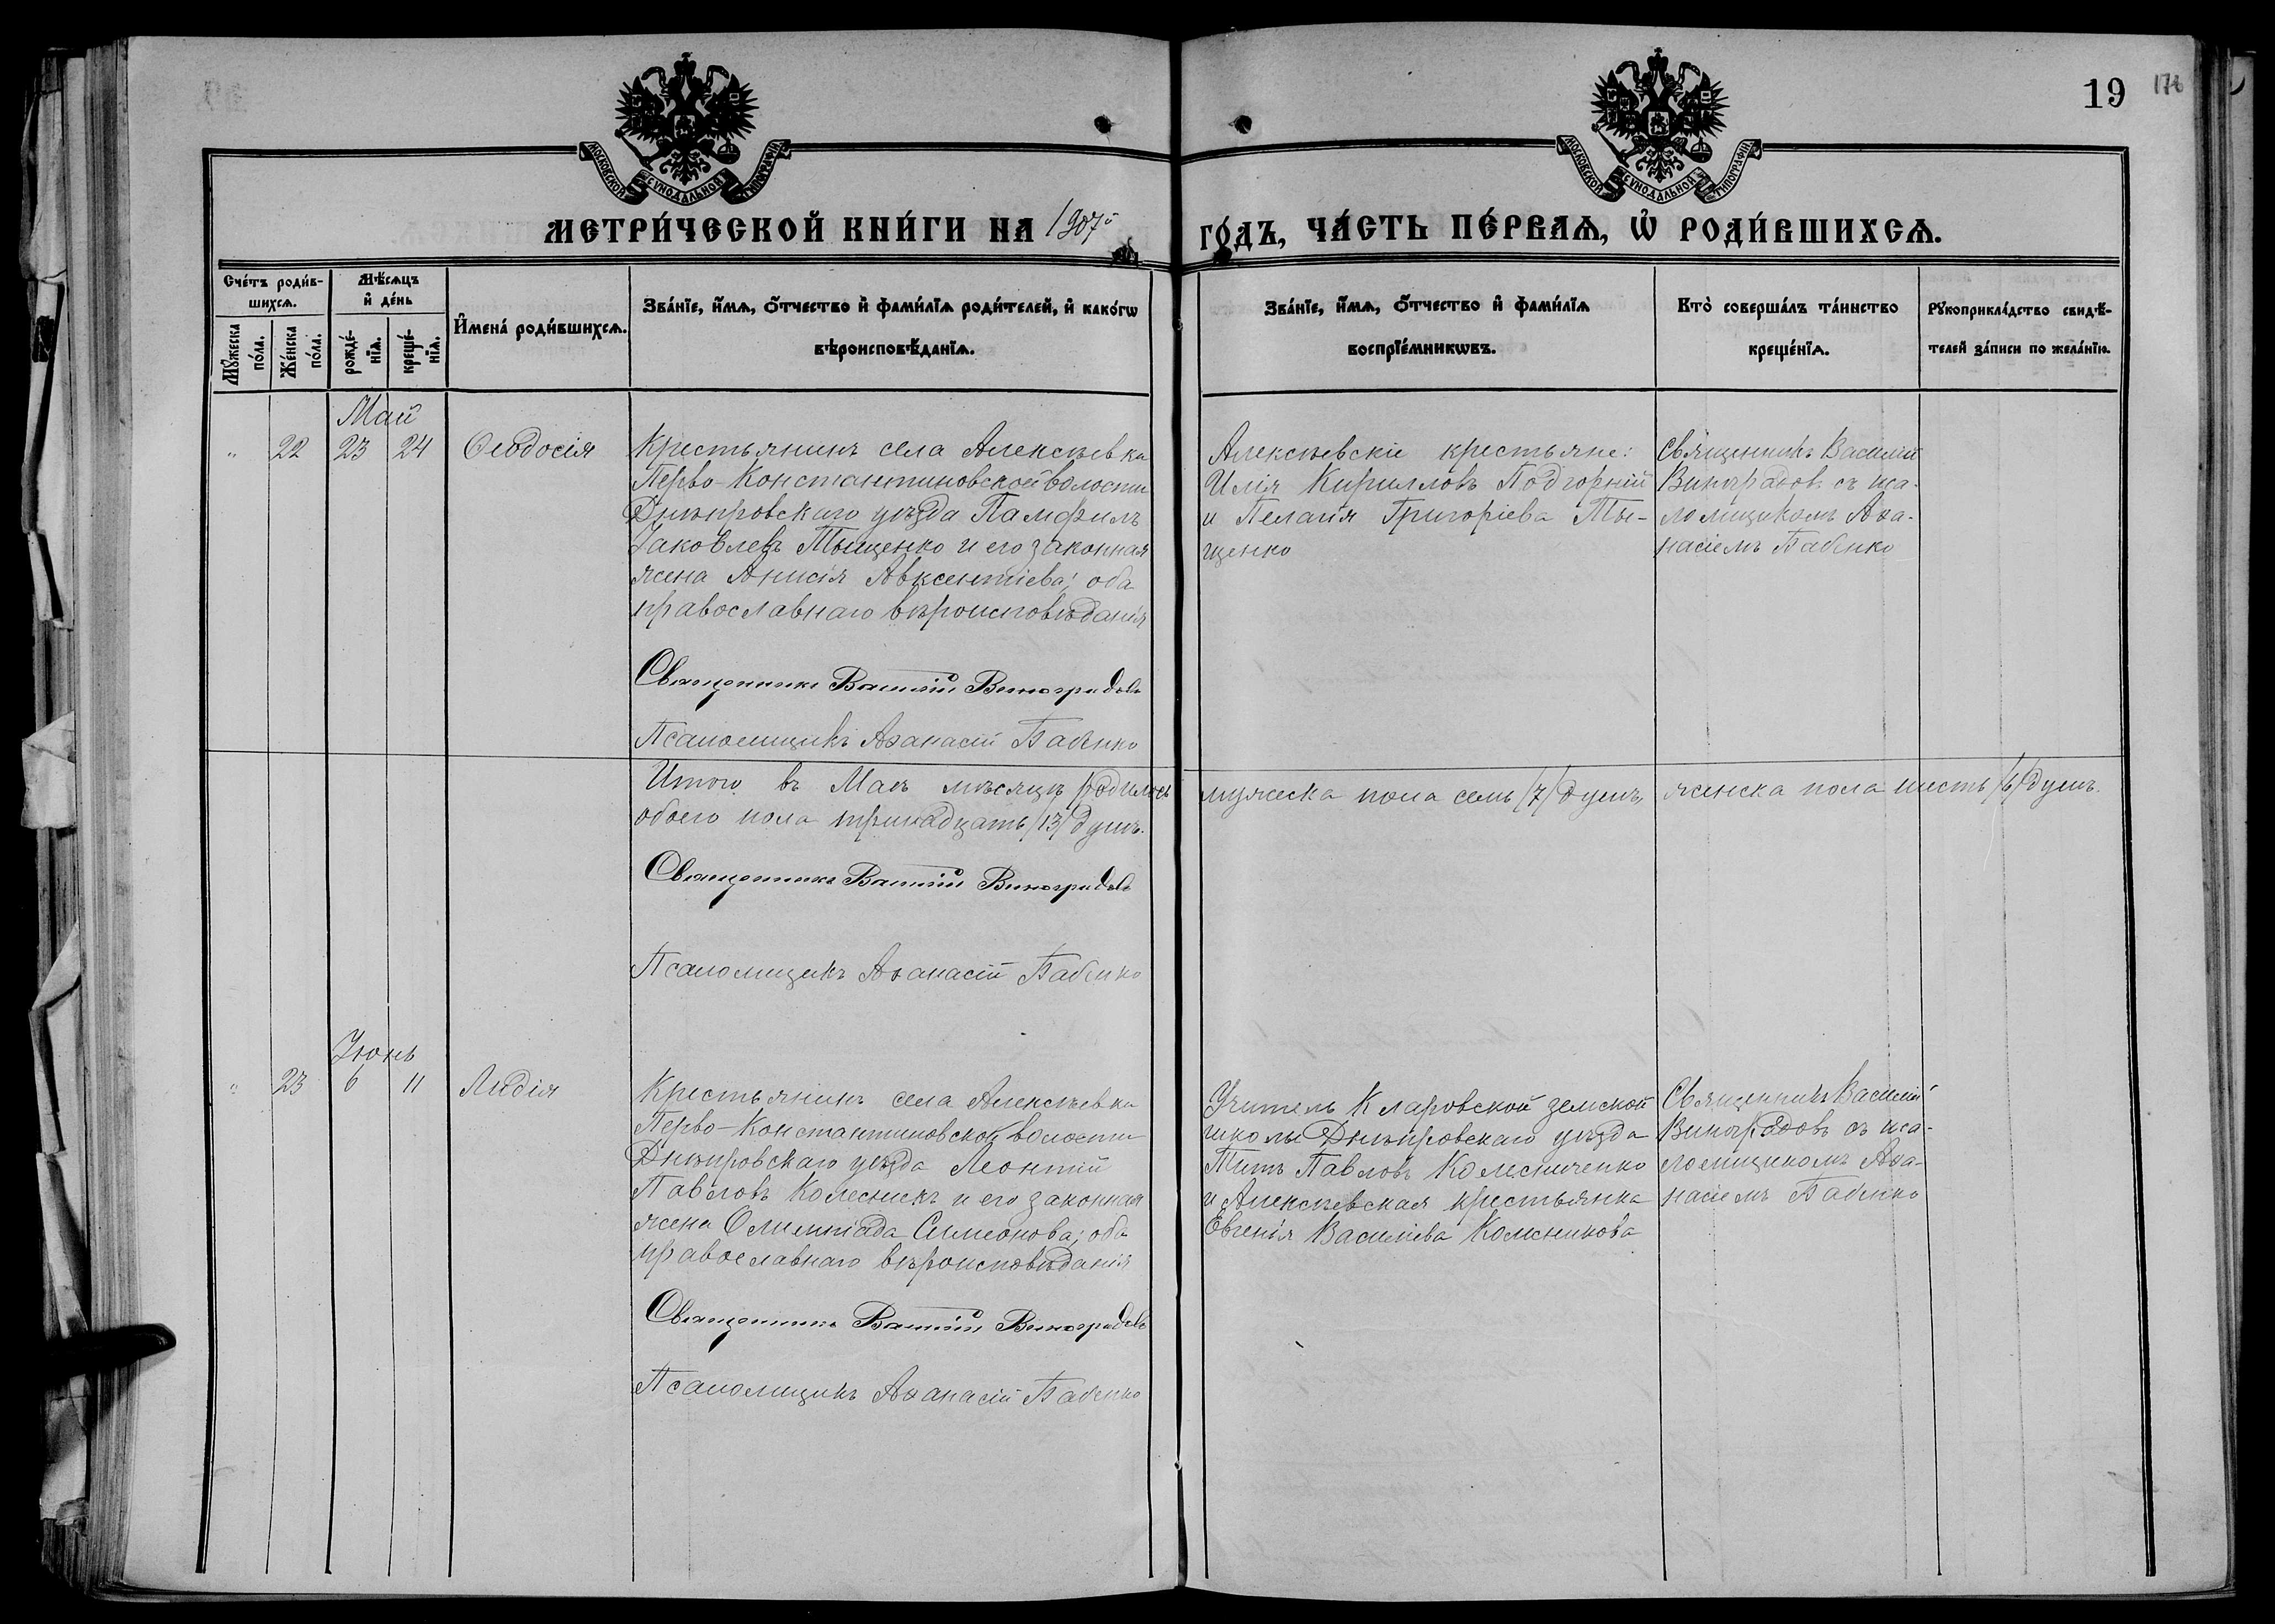 19 176
МОСКОВСКОЙ СѴНОДАЛЬНОЙ ТИПОГРАФІИ
МОСКОВСКОЙ СѴНОДАЛЬНОЙ ТИПОГРАФІИ
МЕТРИ́ЧЕСКОЙ КНИ́ГИ НА 1907й
ГО́ДЪ, ЧА́СТЬ ПЕ́РВАѦ, Ѡ҆ РОДИ́ВШИХСѦ.
Сче́тъ роди́в-
шихсѧ.
Мꙋ́жеска
по́ла.
Же́нска
по́ла.
Мѣ́сѧцъ
и҆ де́нь
рожде́-
нїѧ.
креще́-
нїѧ.
И҆мена̀ роди́вшихсѧ.
Зва́нїе, и҆́мѧ, ѻ҆́тчество и҆ фами́лїѧ роди́телей, и҆ како́гѡ
вѣроисповѣ́данїѧ.
Зва́нїе, и҆́мѧ, ѻ҆́тчество и҆ фами́лїѧ
воспрїе́мникѡвъ.
Кто̀ соверша́лъ та́инство
креще́нїѧ.
Рꙋкоприкла́дство свидѣ́-
телей за́писи по жела́нїю.
Май
" 22 23 24 Ѳеодосія
Крестьянинъ села Алексѣевки
Перво-Константиновской волости
Днѣпровскаго уѣзда Памфилъ
Іаковлевъ Тыщенко и его законная
жена Анисія Авксентіева; оба
православнаго вѣроисповѣданія
Священникъ Василій Виноградовъ
Псаломщикъ Аѳанасій Бабенко
Алексѣевскіе крестьяне:
Илія Кирилловъ Подгорній
и Пелагія Григоріева Ты-
щенко
Священникъ Василій
Виноградовъ съ пса-
ломщикомъ Аѳа-
насіемъ Бабенко
Итого въ Маѣ мѣсяцѣ родилось мужеска пола семь /7/ душъ, женска пола шесть /6/ душъ.
обоего пола тринадцать /13/ душъ.
Священникъ Василій Виноградовъ
Псаломщикъ Аѳанасій Бабенко
Іюнь
" 23 6 11 Лидія
Крестьянинъ села Алексѣевки
Перво-Константиновской волости
Днѣпровскаго уѣзда Леонтій
Павловъ Колесникъ и его законная
жена Олимпіада Симеонова; оба
православнаго вѣроисповѣданія
Священникъ Василій Виноградовъ
Псаломщикъ Аѳанасій Бабенко
Учитель Кларовской земской
школы Днѣпровскаго уѣзда
Титъ Павловъ Колесниченко
и Алексѣевская крестьянка
Евгенія Василіева Колесникова
Священникъ Василій
Виноградовъ съ пса-
ломщикомъ Аѳа-
насіемъ Бабенко